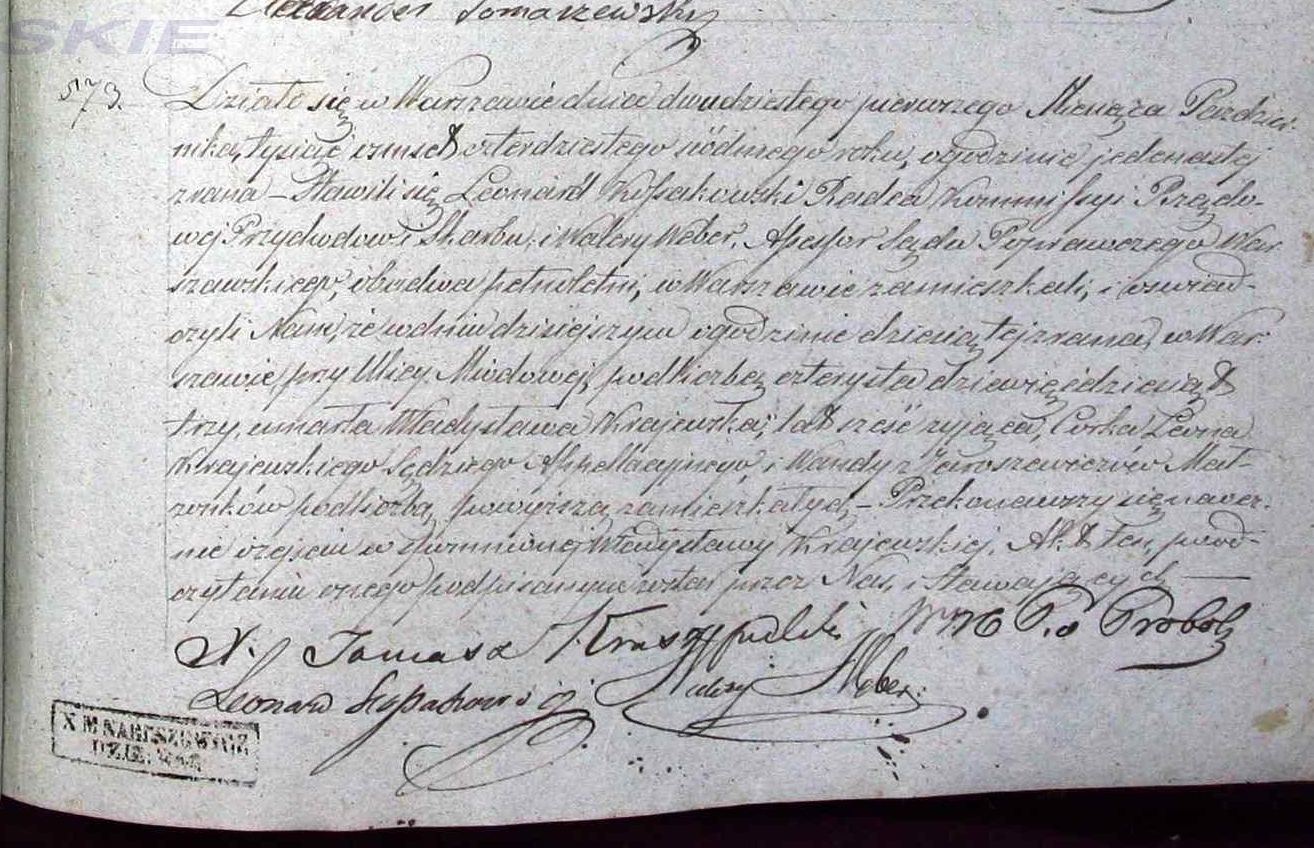 SKIE
Alexander Tomaszewski
573. Działo się w Warszawie dnia dwudziestego pierwszego Miesiąca Pazdzier-
nika, tysiąc osmset czterdziestego siódmego roku, o godzinie jedenastej
zrana – Stawili się Leonard Kossakowski Radca Kommissyi Rządo-
wej Przychodow i Skarbu, i Walery Weber, Assessor Sądu Poprawczego War-
szawskiego, obadwa pełnoletni, w Warszawie zamieszkali, i oswiad-
czyli Nam, że w dniu dzisiejszym o godzinie dziesiątej zrana, w War-
szawie przy Ulicy Miodowej, pod liczbą czterysta dziewięćdziesiąt
trzy, umarła Władysława Krajewska, lat sześć żyjąca, Corka Leona
Krajewskiego Sędziego Appellacyjnego, i Wandy z Jaroszewiczów Mał-
żonków pod liczbą powyższą zamieszkałych – Przekonawszy się naocz-
nie o zejściu wspomnionej Władysławy Krajewskiej, Akt ten, po od-
czytaniu onego podpisanym został przez Nas, i Stawających
X. Tomasz
Leonard Kossakowski Walery Weber
X M NARUSZEWICZ